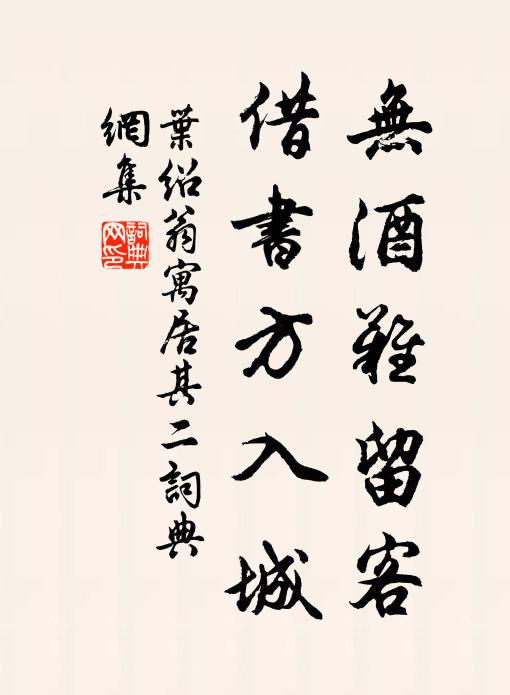 無酒難留客
借書方入城
葉紹翁寓居其二詞典
網集
詞典
网印